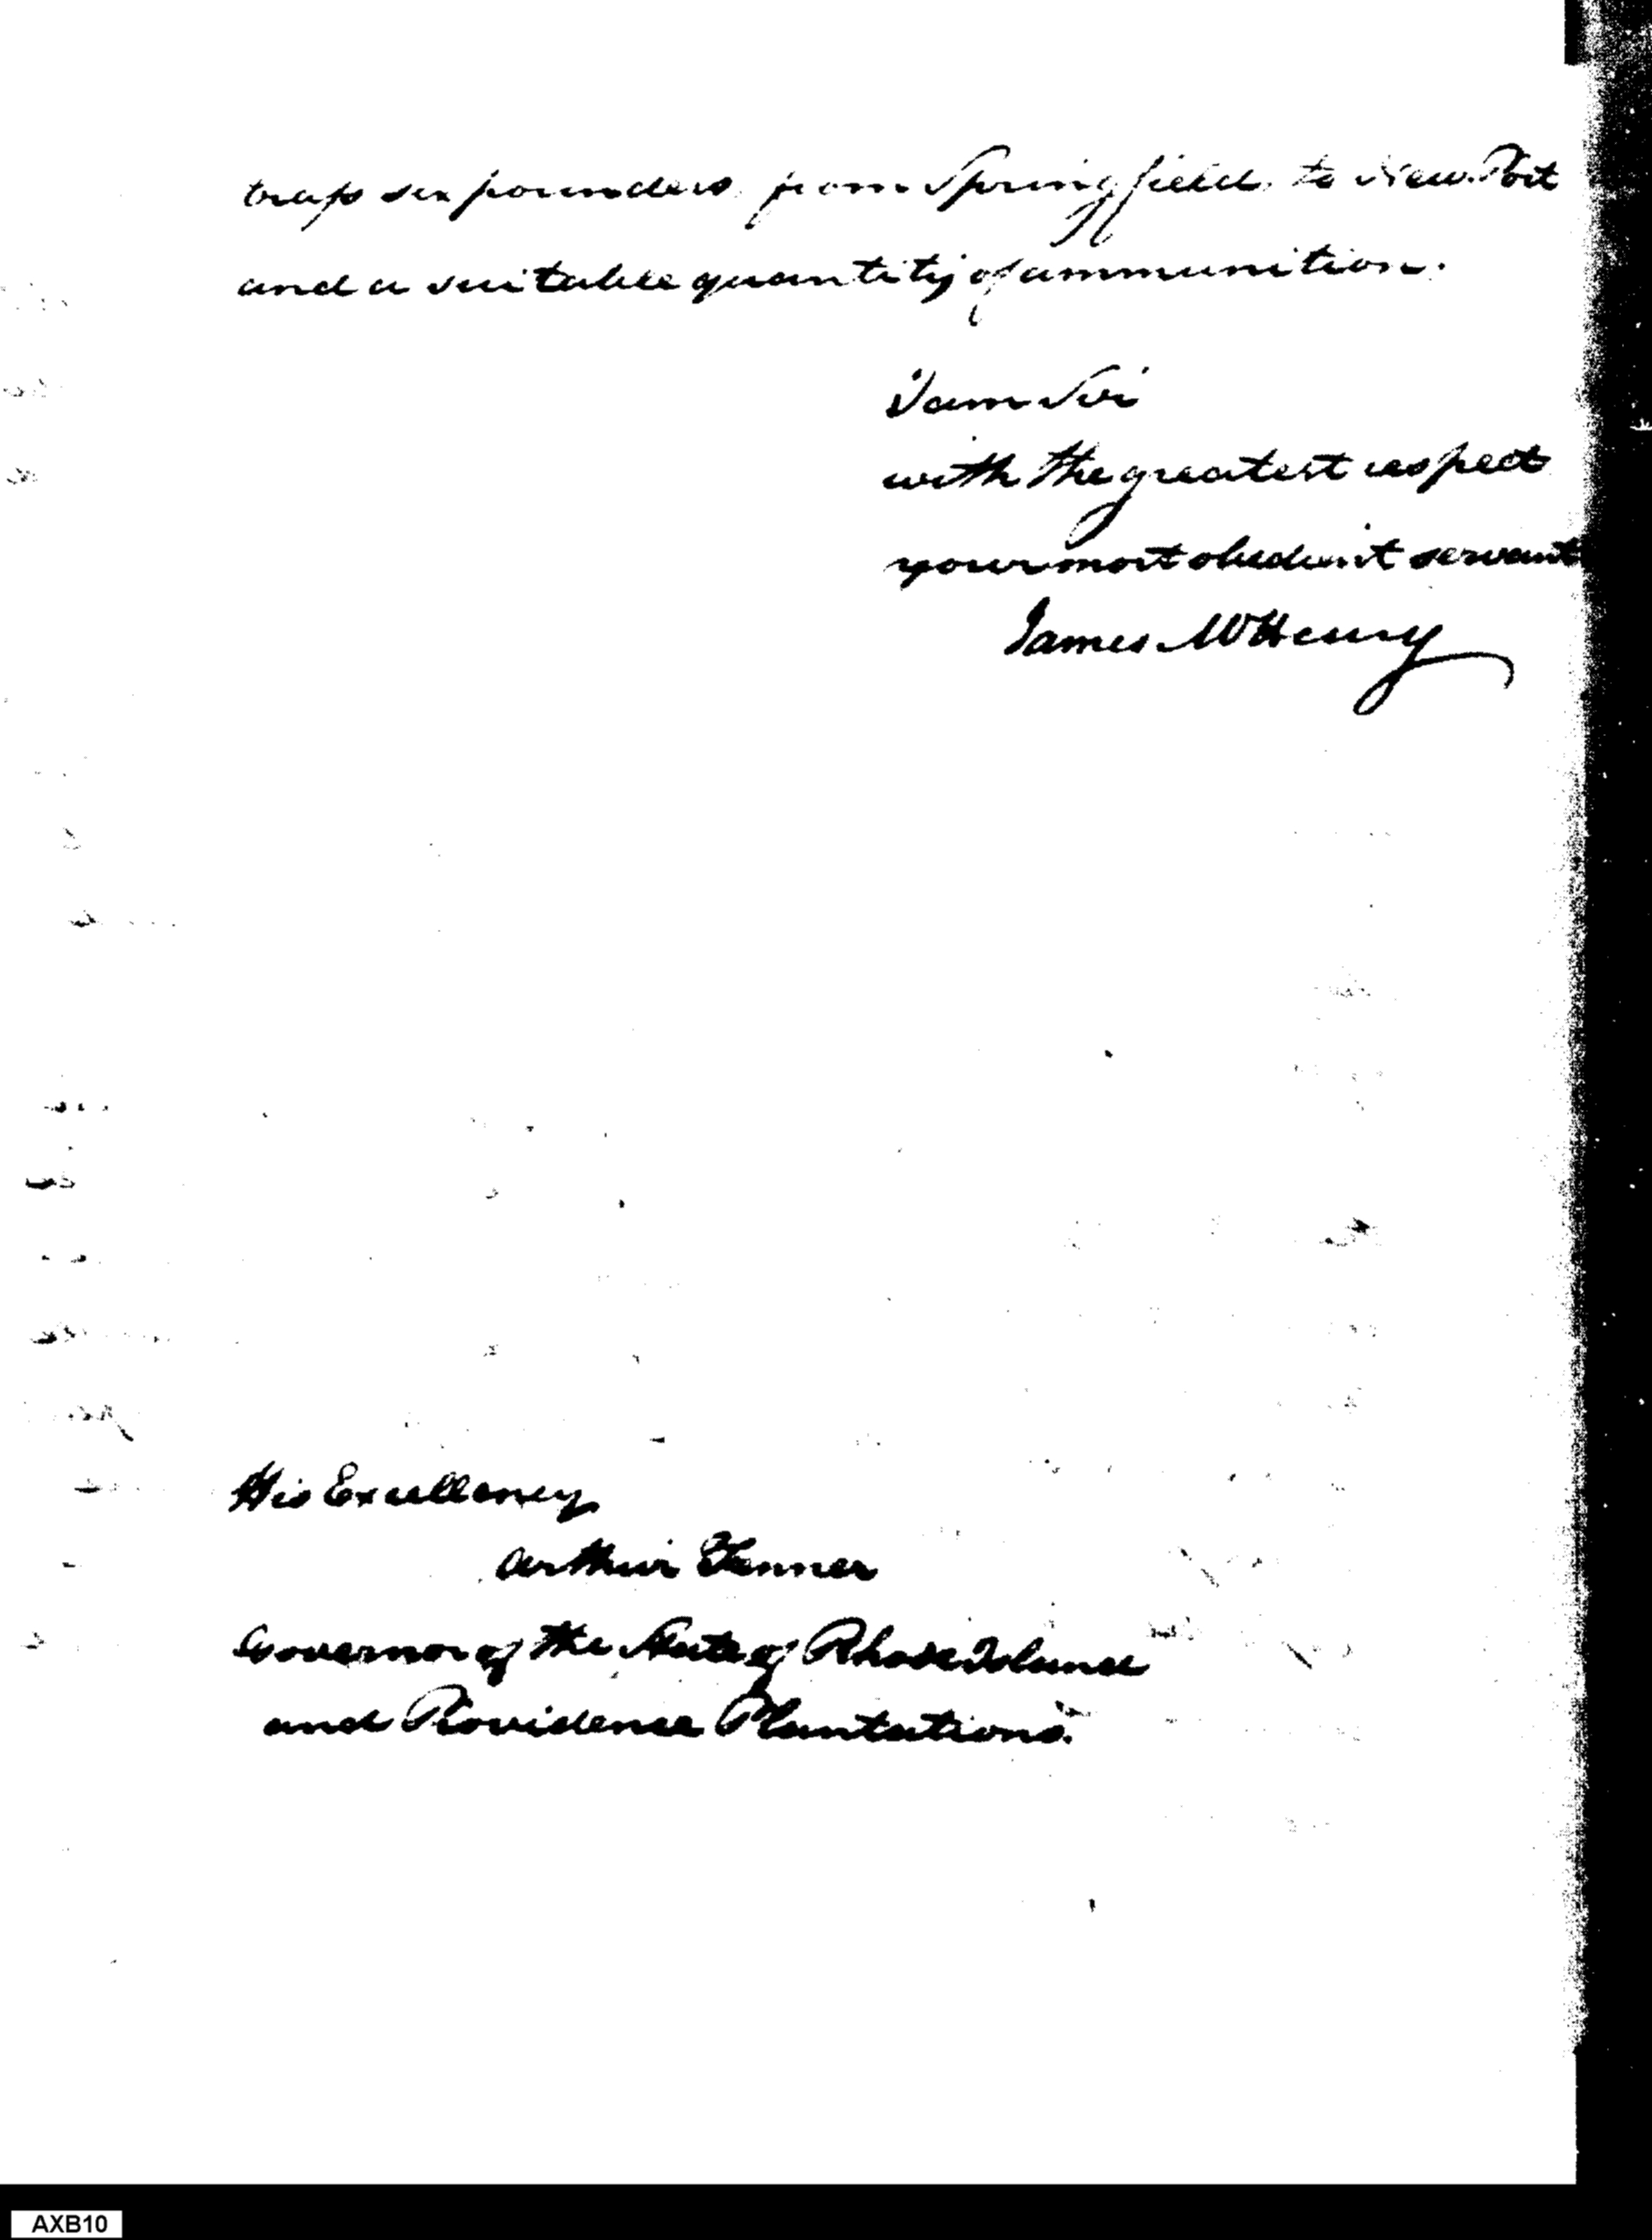 brass six pounders from Springfield to New Port
and a suitable quantity of ammunition.
I am Sir
with the greatest respect
your most obedient servant
James McHenry
His Excellency
Arthur Fenner
Governor of the State of Rhode Island
and Providence Plantations.
AXB10